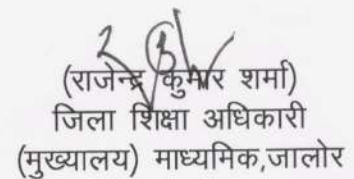 (राजेन्द्र कुमार शर्मा)
जिला शिक्षा अधिकारी
(मुख्यालय) माध्यमिक,जालोर